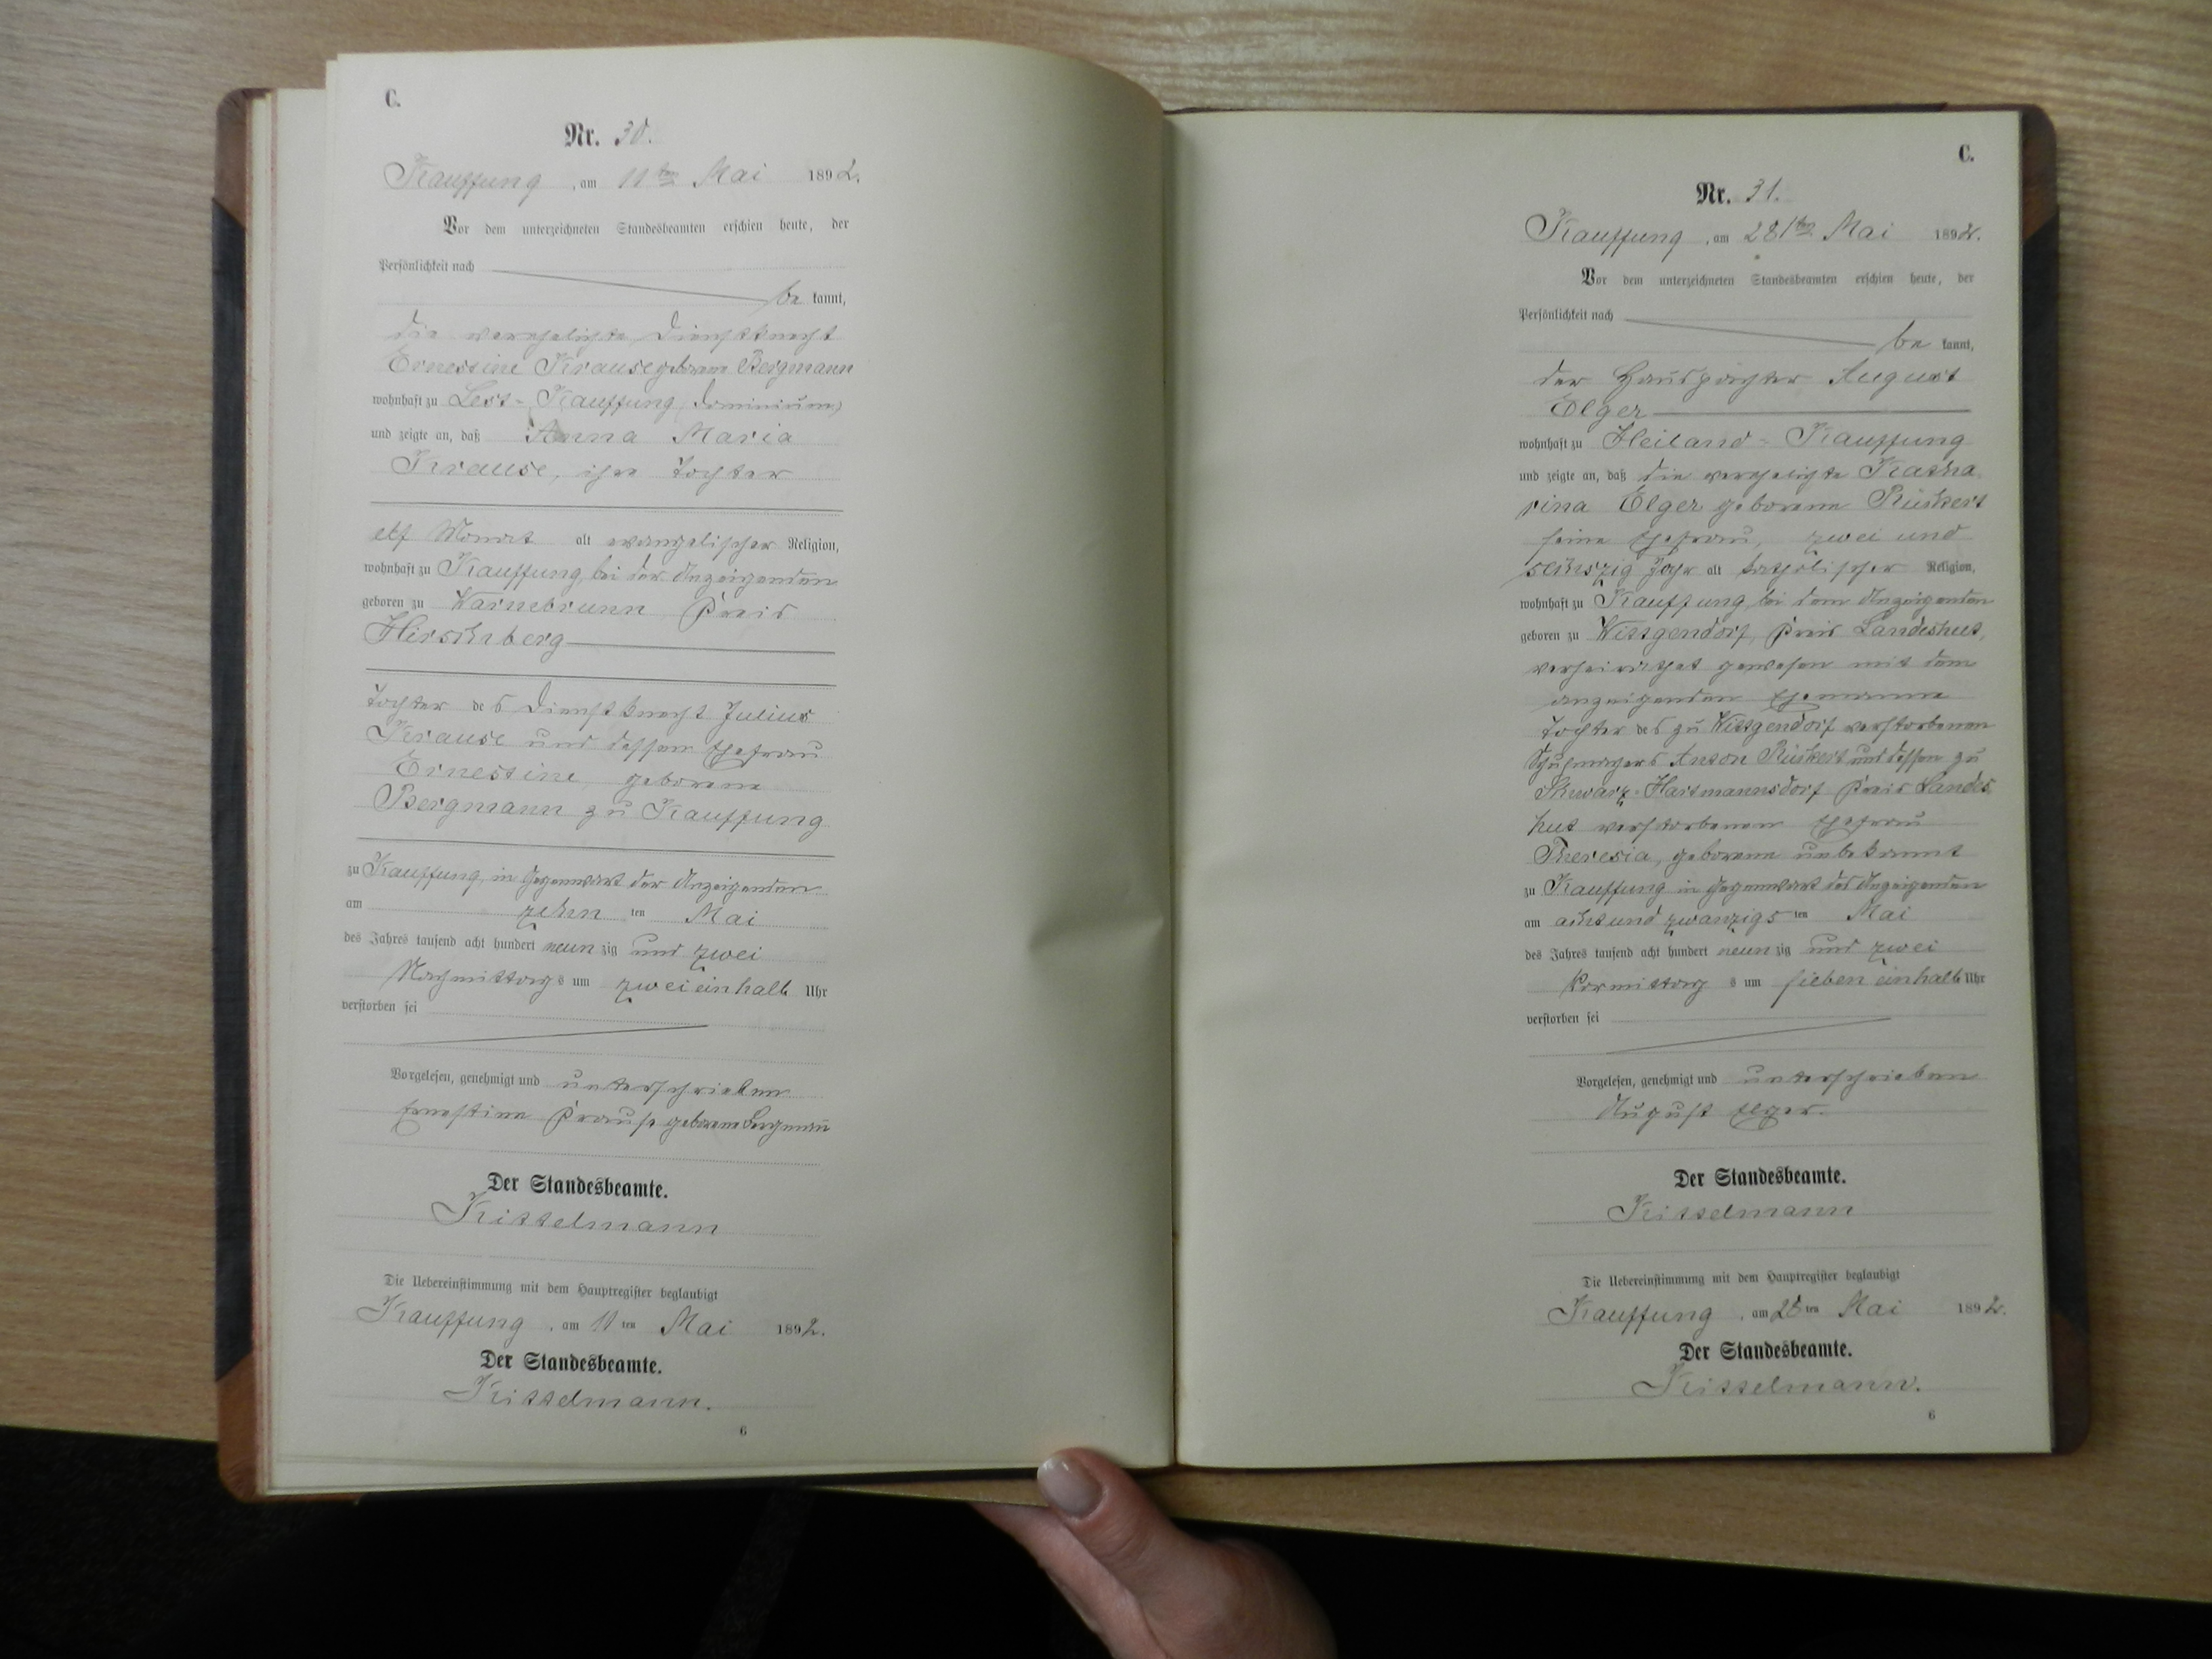 C.
Nr. 30.
Kauffung, am 11ten Mai 1892.
Vor dem unterzeichneten Standesbeamten erschien heute, der
Persönlichkeit nach
be kannt,
die verehelichte Dienstknecht
Ernestine Krause geborene Bergmann
wohnhaft zu Lest-Kauffung, Dominium
und zeigte an, daß Anna Maria
Krause, ihre Tochter
elf Monat alt evangelischer Religion,
wohnhaft zu Kauffung, bei der Anzeigenden
geboren zu Warmbrunn Kreis
Hirschberg
Tochter des Dienstknecht Julius
Krause und dessen Ehefrau
Ernestine, geborene
Bergmann zu Kauffung
zu Kauffung, in Gegenwart der Anzeigenden
am zehn ten Mai
des Jahres tausend acht hundert neun zig und zwei
Nachmittags um zweieinhalb Uhr
verstorben sei
Vorgelesen, genehmigt und unterschrieben
Ernestine Krause geborene Bergmann
Der Standesbeamte.
Kisselmann
Die Uebereinstimmung mit dem Hauptregister beglaubigt
Kauffung, am 11 ten Mai 1892.
Der Standesbeamte.
Kisselmann.
6
C.
Nr. 31.
Kauffung, am 28ten Mai 1892.
Vor dem unterzeichneten Standesbeamten erschien heute, der
Persönlichkeit nach
be kannt,
der Hauspächter August
Elger
wohnhaft zu Heiland-Kauffung
und zeigte an, daß die verehelichte Katha
rina Elger geborene Rückert
seine Ehefrau, zwei und
sechszig Jahr alt katholischer Religion,
wohnhaft zu Kauffung, bei dem Anzeigenden
geboren zu Wittgendorf, Kreis Landeshut,
verheirathet gewesen mit dem
anzeigenden Ehemanne
Tochter des zu Wittgendorf verstorbenen
Schuhmachers Anton Rückert und dessen zu
Schwarz-Hartmannsdorf Kreis Landes
hut verstorbenen Ehefrau
Theresia, geborene unbekannt
zu Kauffung in Gegenwart des Anzeigenden
am achtundzwanzigs ten Mai
des Jahres tausend acht hundert neun zig und zwei
Vormittag s um sieben einhalb Uhr
verstorben sei
Vorgelesen, genehmigt und unterschrieben
August Elger.
Der Standesbeamte.
Kisselmann
Die Uebereinstimmung mit dem Hauptregister beglaubigt
Kauffung, am 28 ten Mai 1892.
Der Standesbeamte.
Kisselmann.
6